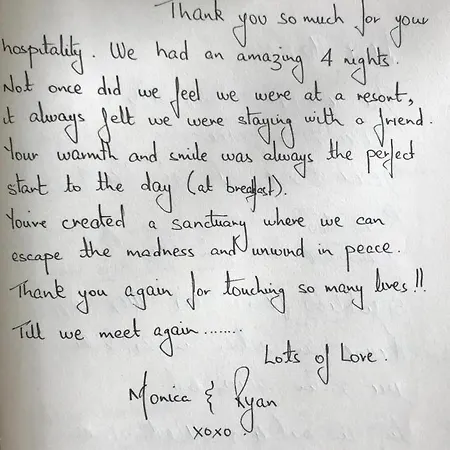 Thank you so much for your
hospitality. We had an amazing 4 nights.
Not once did we feel we were at a resort,
it always felt we were staying with a friend.
Your warmth and smile was always the perfect
start to the day (at breafast).
You've created a sanctuary where we can
escape the madness and unwind in peace.
Thank you again for touching so many lives!!
Till we meet again........
Lots of Love.
Monica & Ryan
xoxo.